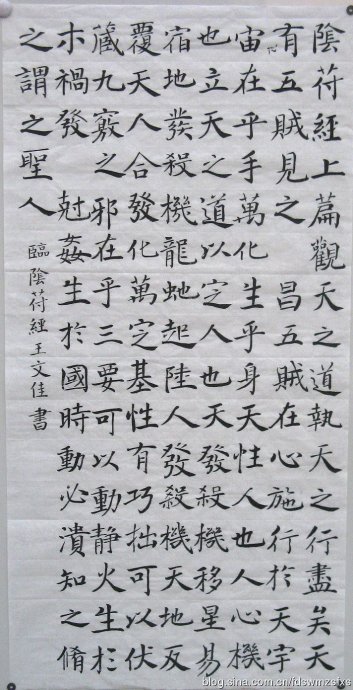 隂苻經上篇觀天之道執天之行盡矣天
有五賊見之昌五賊在心施行於天宇
宙在乎手萬化生乎身天性人也人心機
也立天之道以定人也天發殺機移星易
宿地發殺機龍虵起陸人發殺機天地反
覆天人合發化萬定基性有巧拙可以伏
藏九竅之邪在乎三要可以動静火生於
木禍發尅姦生於國時動必潰知之脩
之謂之聖人
臨隂苻經王文佳書